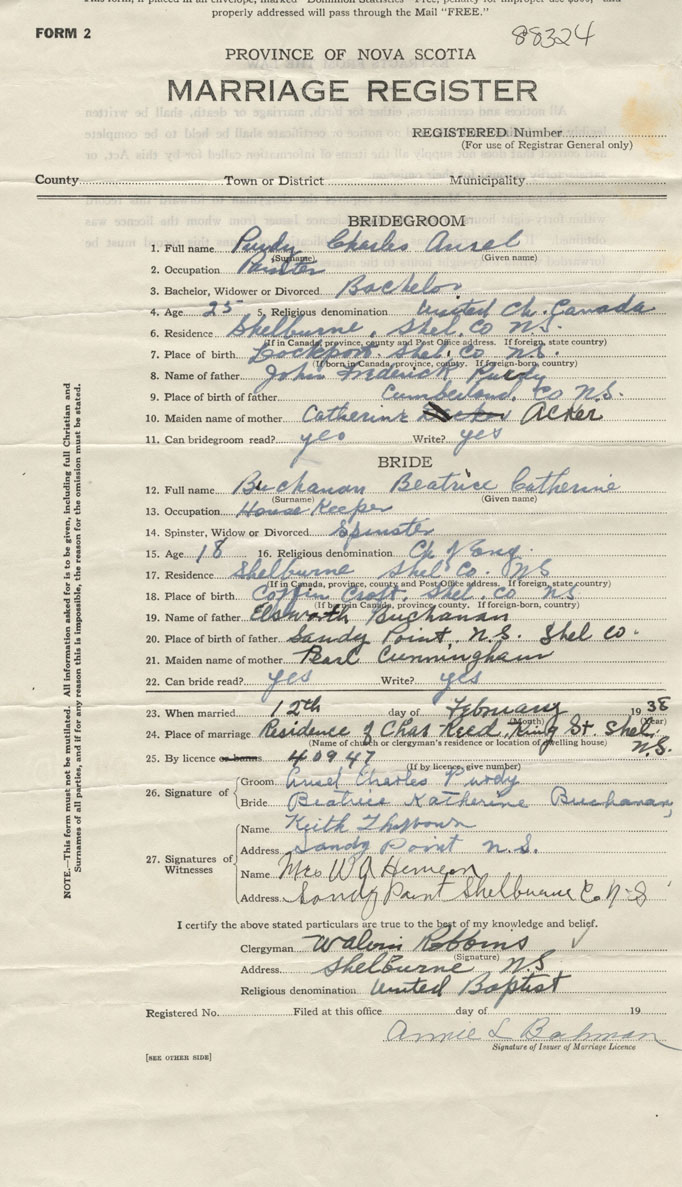 properly addressed will pass through the Mail "FREE."
FORM 2
88324
PROVINCE OF NOVA SCOTIA
MARRIAGE REGISTER
REGISTERED Number
(For use of Registrar General only)
County Town or District Municipality
BRIDEGROOM
1. Full name Purdy Charles Ansel
(Surname) (Given name)
2. Occupation Painter
3. Bachelor, Widower or Divorced Bachelor
4. Age 25 5. Religious denomination United Ch. Canada
6. Residence Shelburne, Shel. Co N.S.
(If in Canada, province, county and Post Office address. If foreign, state country)
7. Place of birth Lockport Shel. Co N.S.
(If born in Canada, province, county. If foreign-born, country)
8. Name of father John Frederick Purdy
9. Place of birth of father Cumberland Co N.S.
10. Maiden name of mother Catherine Acker
11. Can bridegroom read? yes Write? yes
BRIDE
12. Full name Buchanan Beatrice Catherine
(Surname) (Given name)
13. Occupation House Keeper
14. Spinster, Widow or Divorced Spinster
15. Age 18 16. Religious denomination Ch of Eng.
17. Residence Shelburne Shel. Co. N.S
(If in Canada, province, county and Post Office address. If foreign, state country)
18. Place of birth Coffin Croft, Shel. Co NS
(If born in Canada, province, county. If foreign-born, country)
19. Name of father Elsworth Buchanan
20. Place of birth of father Sandy Point, N.S. Shel Co.
21. Maiden name of mother Pearl Cunningham
22. Can bride read? yes Write? yes
23. When married 12th day of February 1938
(Month) (Year)
24. Place of marriage Residence of Chas Reed, King St. Shel. N.S.
(Name of church or clergyman's residence or location of dwelling house)
25. By licence or banns 40947
(If by licence, give number)
26. Signature of
Groom Ansel Charles Purdy
Bride Beatrice Katherine Buchanan
27. Signatures of Witnesses
Name Keith
Address Sandy Point N.S.
Name Mrs W A
Address Sandy Point Shelburne Co N-S
I certify the above stated particulars are true to the best of my knowledge and belief.
Clergyman Robbins
(Signature)
Address Shelburne N.S
Religious denomination United Baptist
Registered No. Filed at this office day of 19
Annie L Bohman
Signature of Issuer of Marriage Licence
[SEE OTHER SIDE]
NOTE.—This form must not be mutilated. All information asked for is to be given, including full Christian and
Surnames of all parties, and if for any reason this is impossible, the reason for the omission must be stated.